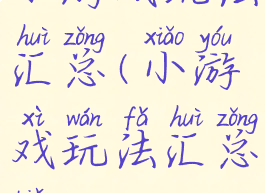 huì zǒng xiǎo yóu
汇总(小游
xì wán fǎ huì zǒng
戏玩法汇总